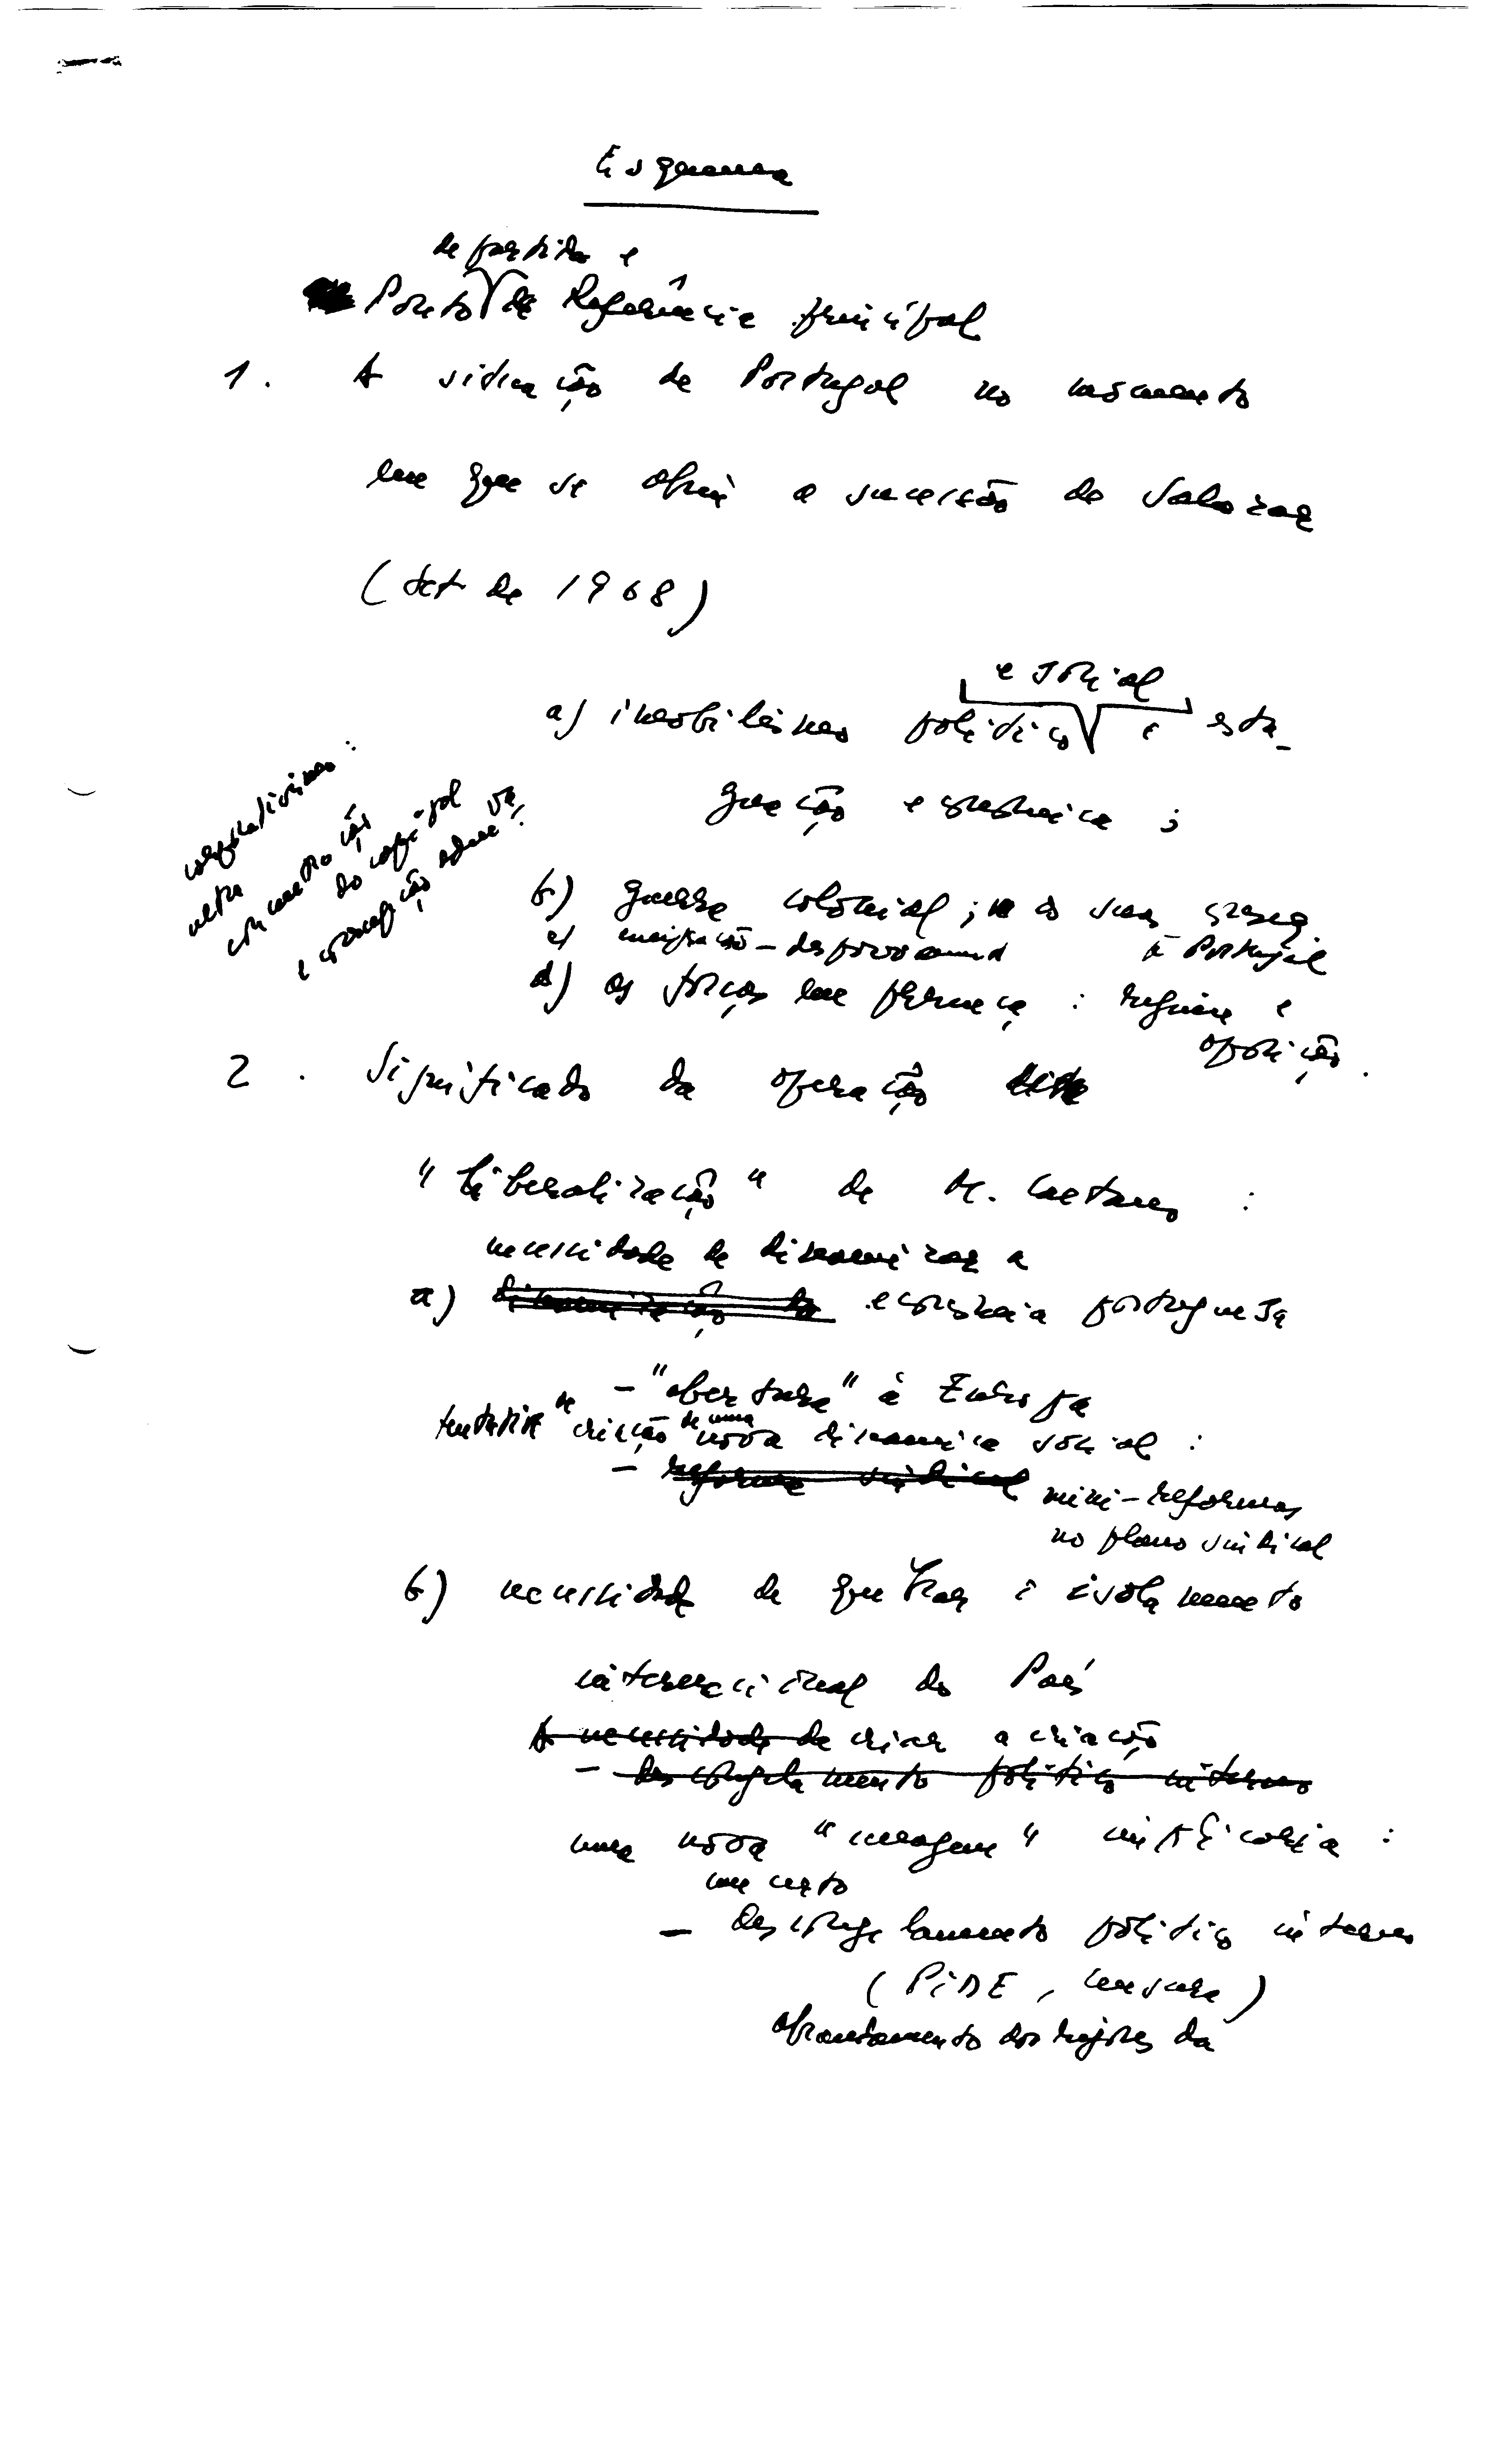 Esquema
de partida e
Ponto de Referência principal
1. A situação de Portugal no momento
em que se abriu a sucessão de Salazar
(Set de 1968)
e social
a) imobilismo político e esta-
gnação económica;
corporativismo:
ultra
concentração
do capital
b) guerra colonial;
c) emigração - despovoamento
d) as forças em presença: regime e
oposição.
2. Significado da operação
"Liberalização" de M. Caetano:
necessidade de dinamizar a
a) dinamização da economia portuguesa
- "abertura" à Europa
tentativa de criação de uma nova dinamica social:
- reforma sindical mini-reformas
no plano sindical
b) necessidade de quebrar o isolamento
internacional do País
A necessidade de criar a criação
- descongelamento político interno
uma nova "imagem"
um certo
- descongelamento político interno
(PIDE, censura)
abrandamento dos rigores da